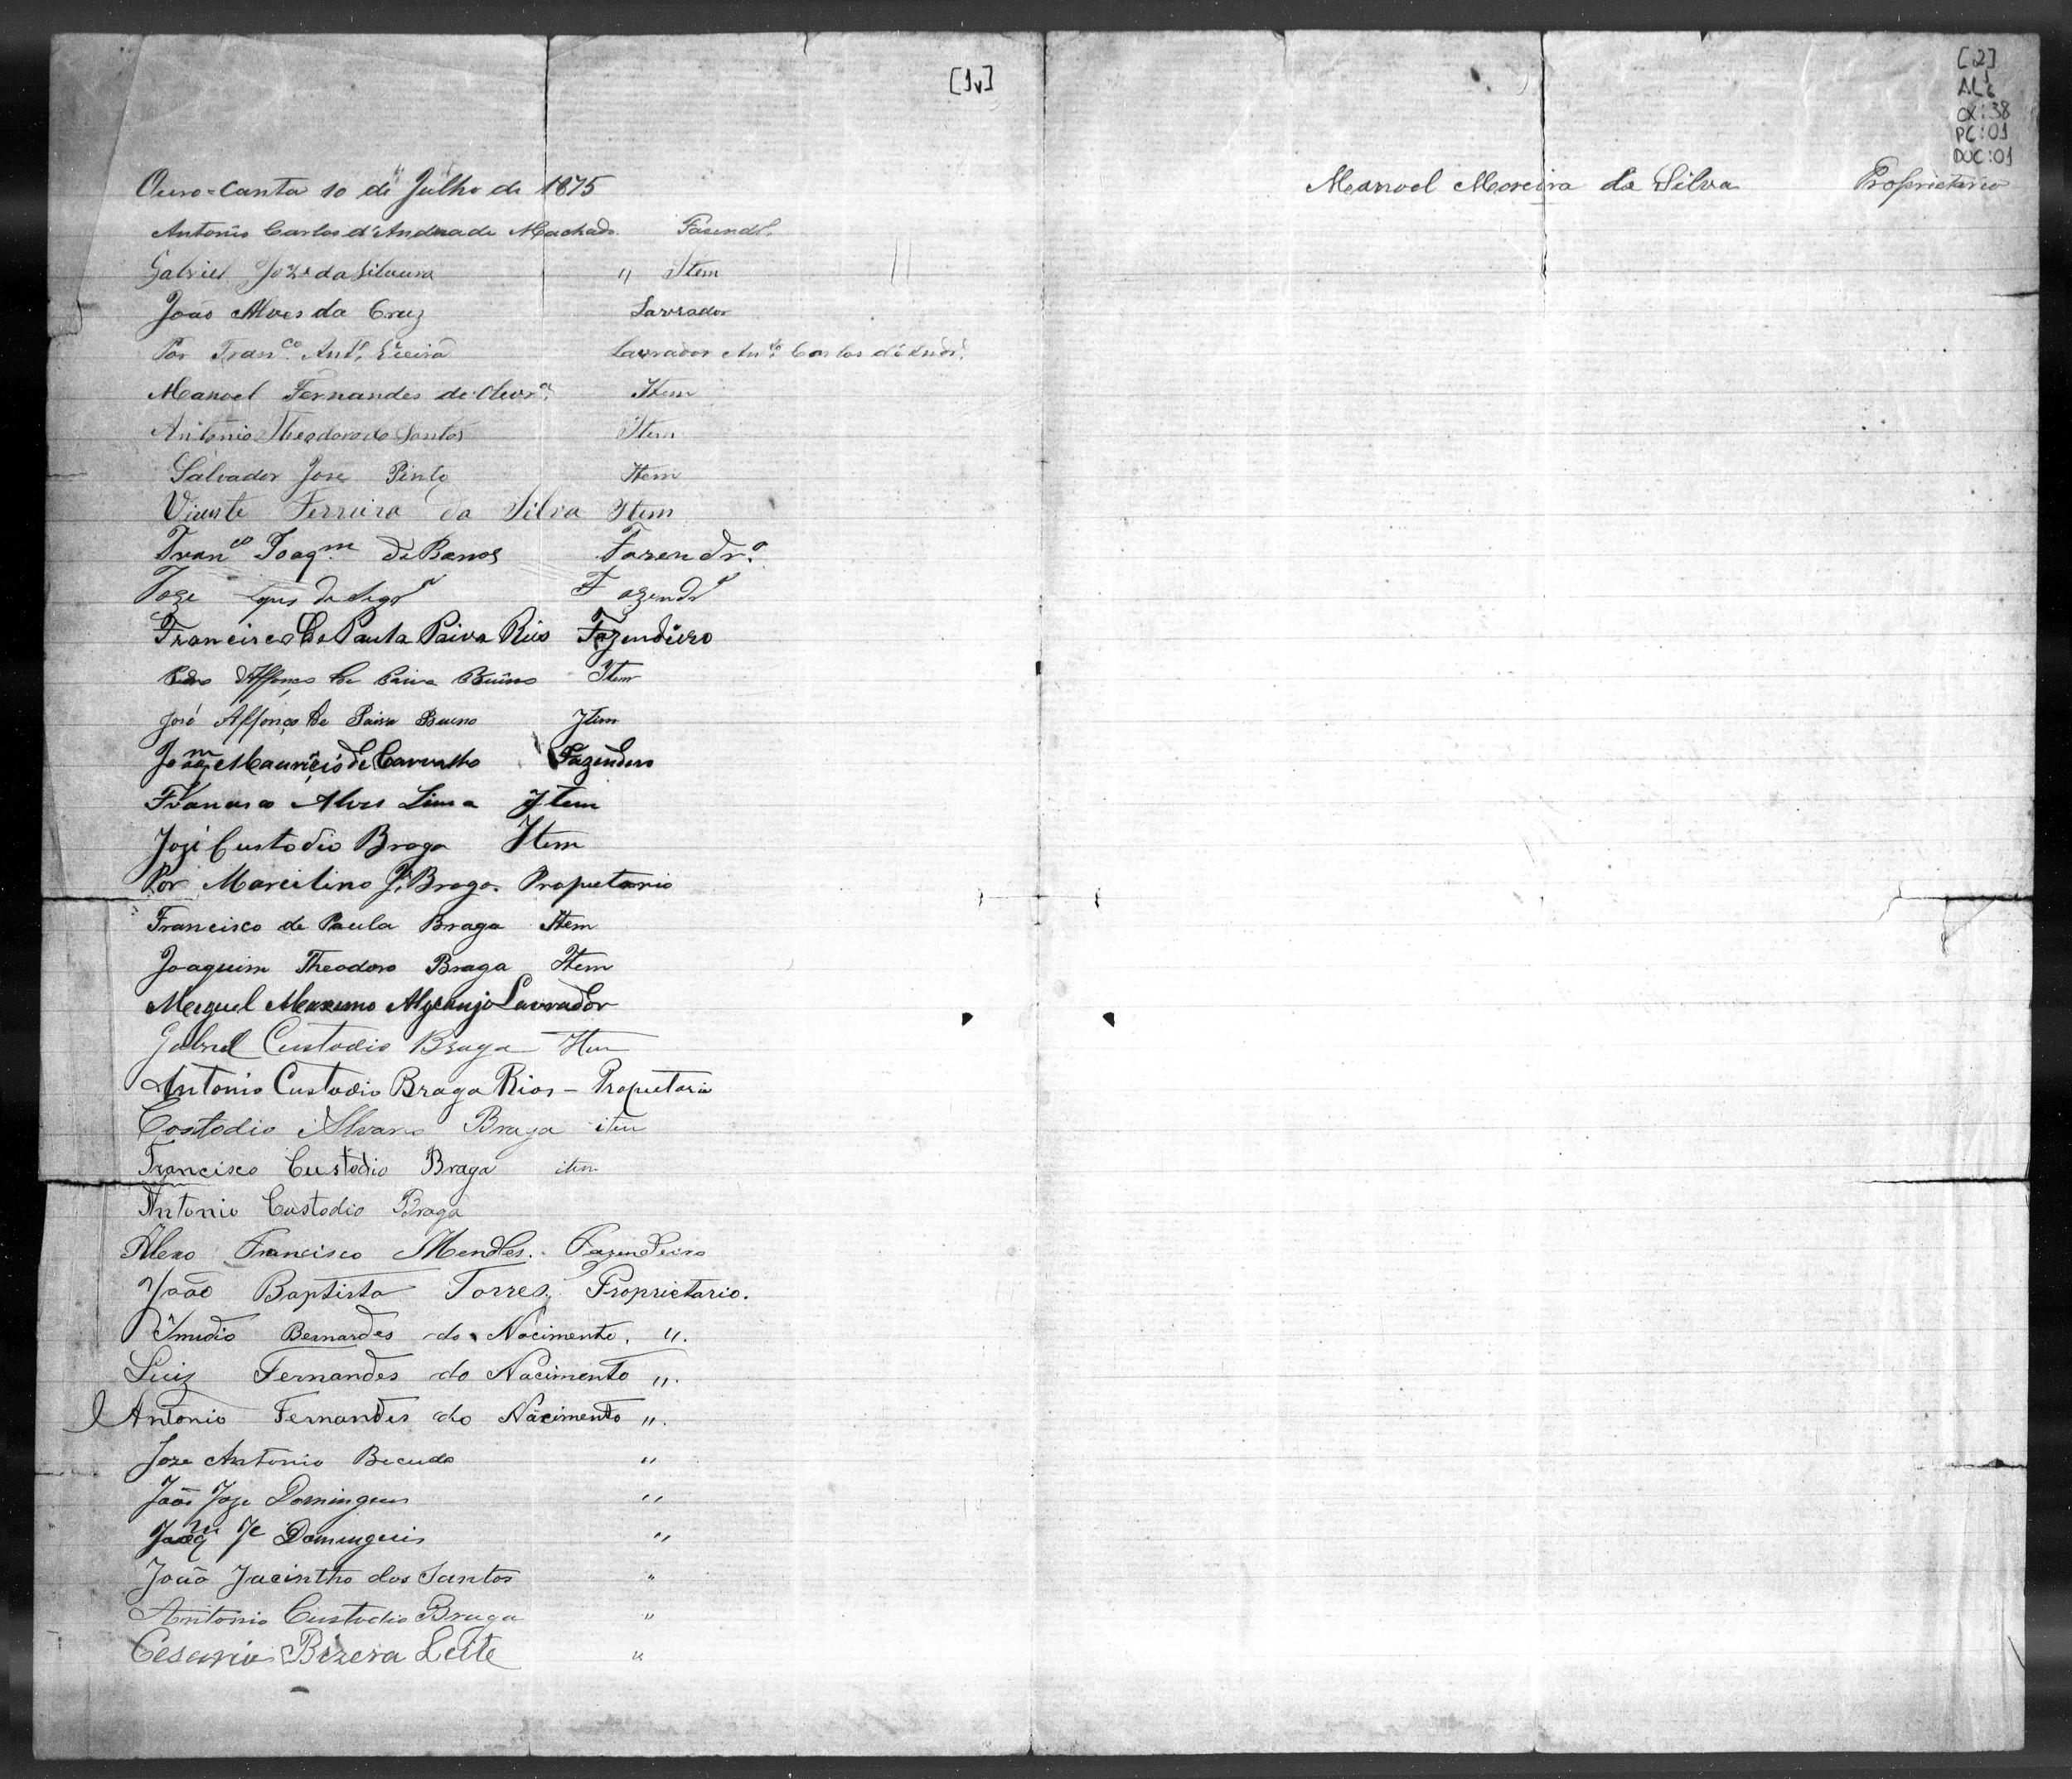 [1v]
Ouro=canta 10 de Julho de 1875
Antonio Carlos d'Andrade Machado. Fasendr.º
Gabriel Joze da Silveira " Item
João Alves da Cruz Lavrador
Por Fran.co Ant.º Lavrador An.to Carlos d'Andr.e
Manoel Fernandes de Olivr.a Item
Antonio Theodoro do Santos Item
Salvador Jose Pinto Item
Vicente Ferreira da Silva Item
Fran.co Joaq.m de Fazendr.º
Joze de Fazendr.º
Francisco de Paula Paiva Rios Fazendiero
Pedro Affonço de Paiva Bueno Item
José Affonço de Paiva Bueno Item
Joaq.m Mauricio de Carvalho Fazendero
Francisco Alves Lima Item
Jozé Custodio Braga Item
Por Marcilino J.e Braga. Propietario
Francisco de Paula Braga Item
Joaquim Theodoro Braga Item
Meguel Maxemo Lavrador
Gabriel Custodio Braga Item
Antonio Custodio Braga Rios – Propietario
Costodio Alvaro Braga item
Francisco Custodio Braga item
Antonio Custodio Braga
Alexo Francisco Mendes. Fazendeiro
João Baptista Torres, Proprietario.
Bernardes do Nacimento. ".
Luiz Fernandes do Nacimento ".
Antonio Fernandes do Nacimento ".
Joze Antonio Bicudo "
João Joze Domingues "
Joaq.m Je Domingues "
João Jacintho dos Santos "
Antonio Custodio Braga "
Cesario Bizera Leite "
[2]
AL
CX:38
PC:01
DOC:01
Manoel Moreira da Silva Proprietario